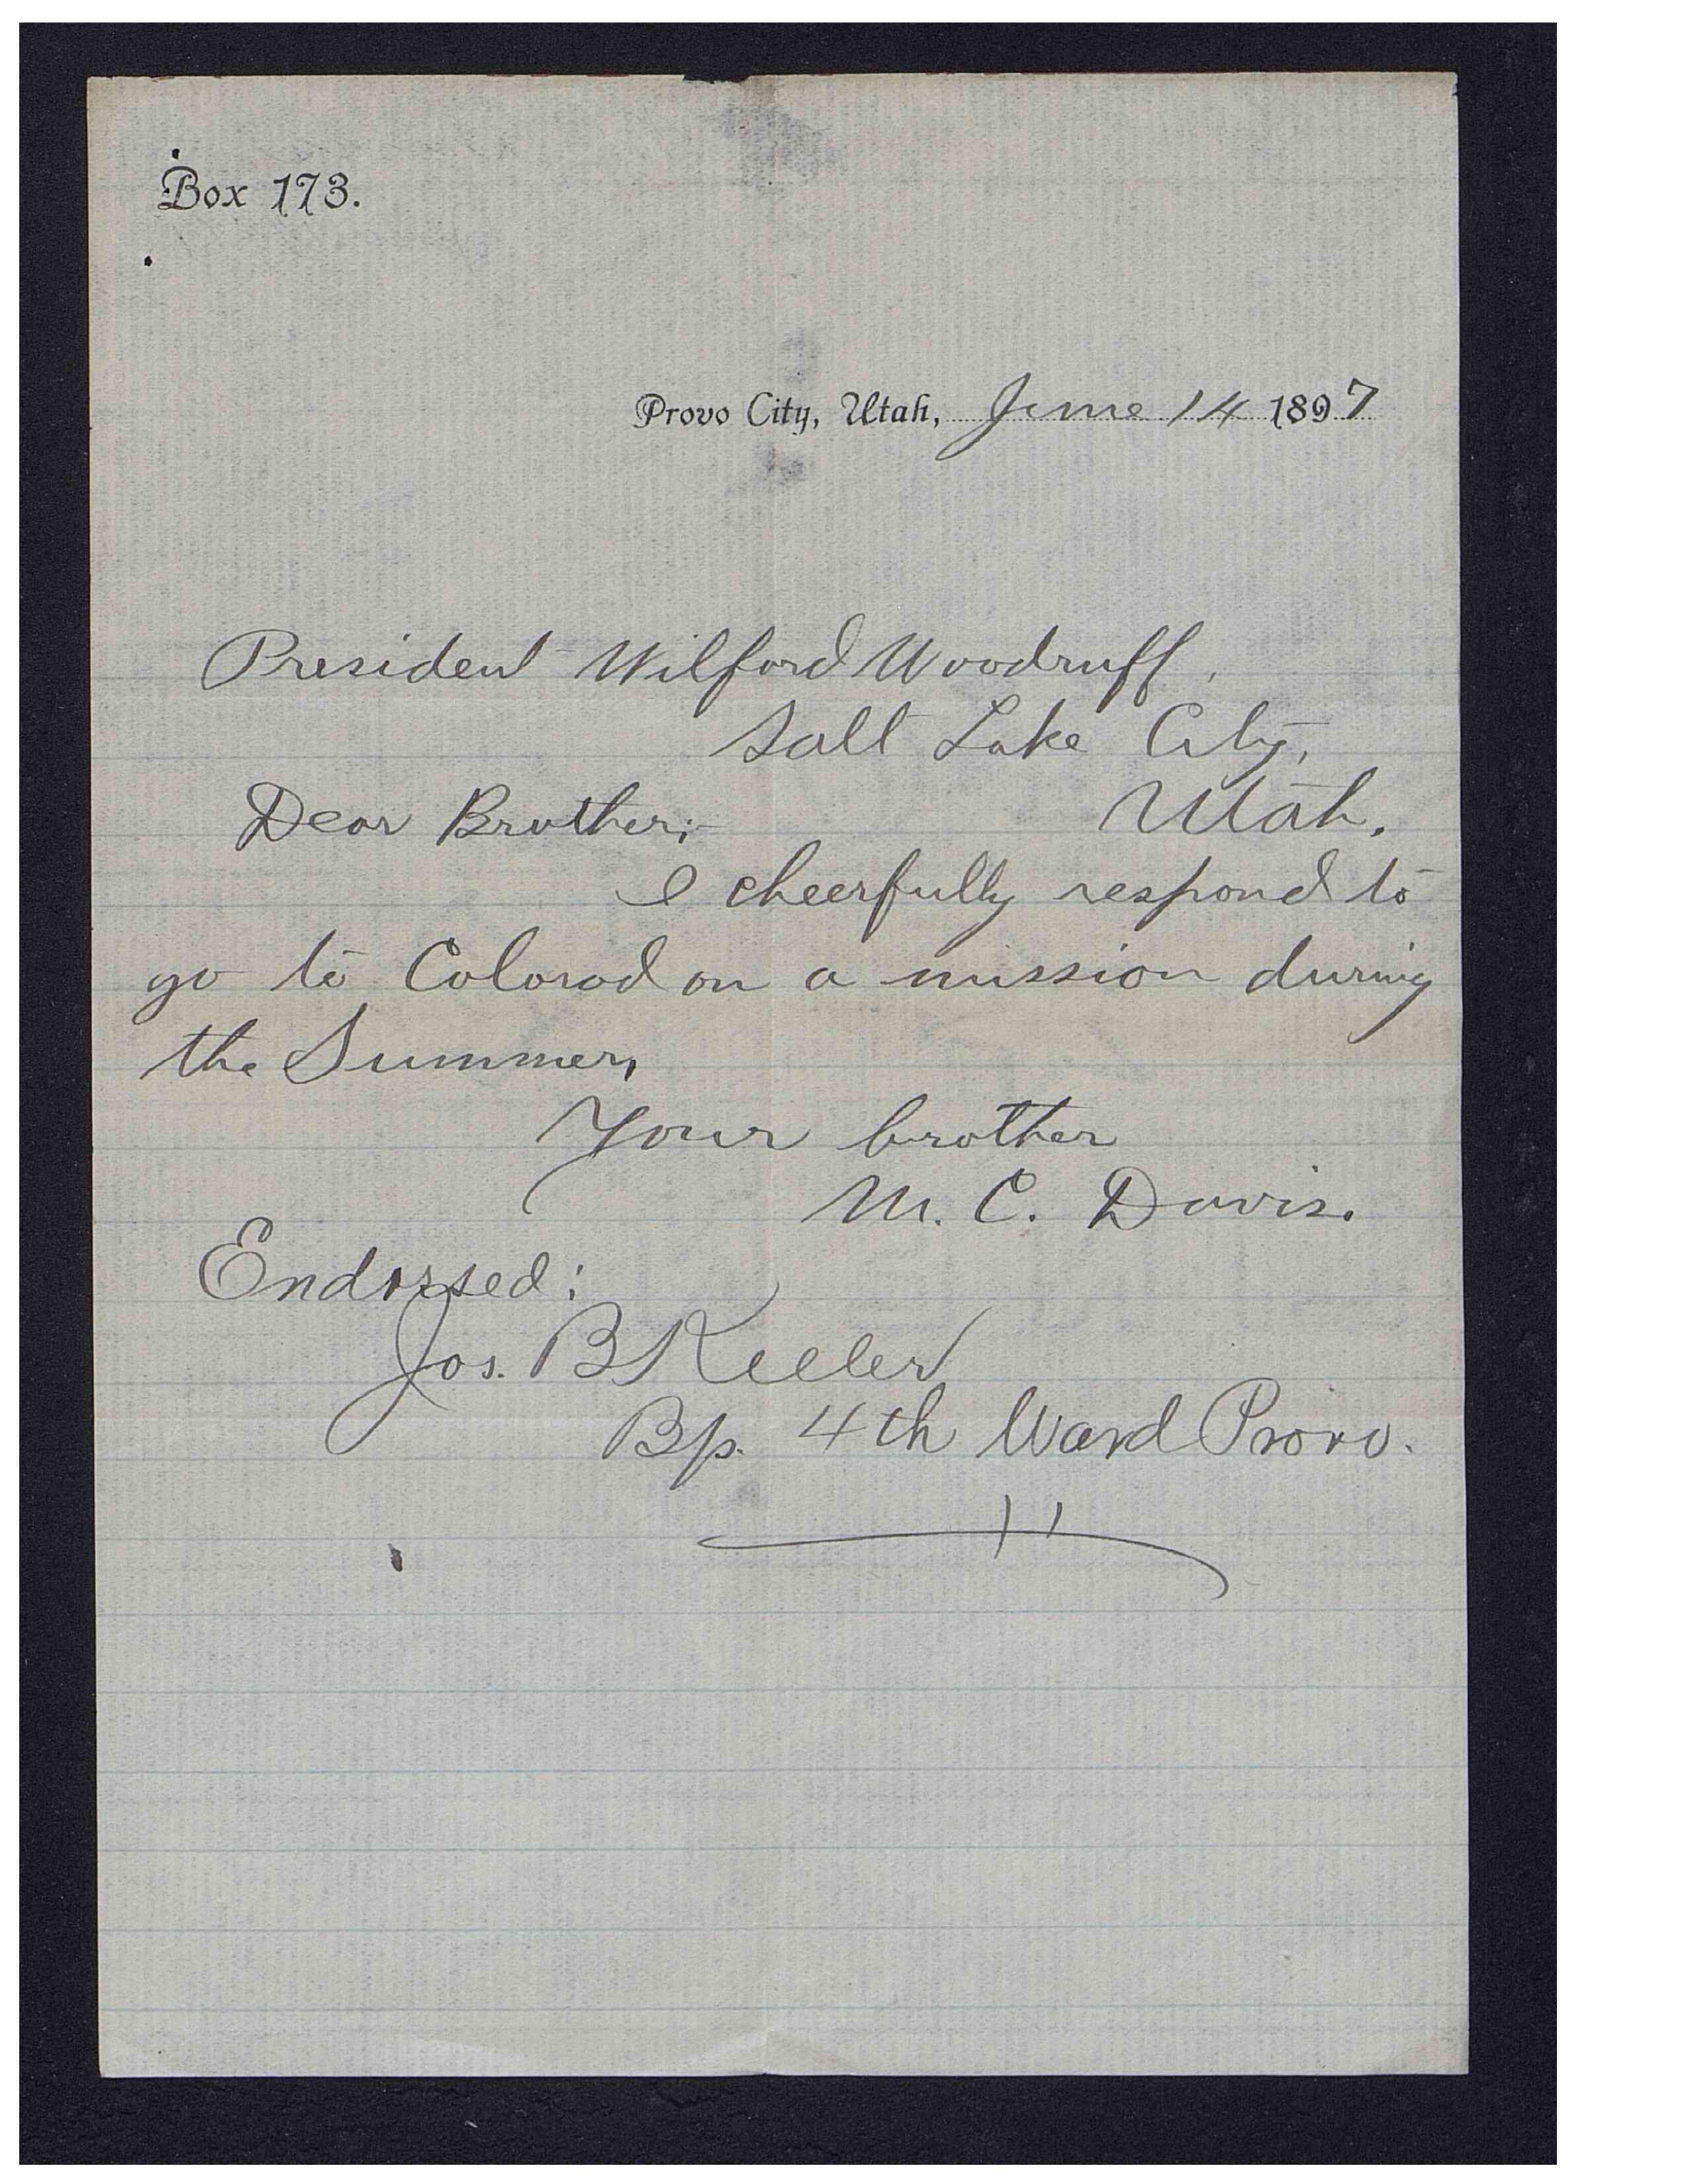 Box 173.
Provo City, Utah, June 14 1897
President Wilford Woodruff,
Salt Lake City,
Utah.
Dear Brother;-
I cheerfully respond to
go to Colorod on a mission during
the Summer,
Your brother
M. C. Davis.
Endorsed:
Jos. B Keeler
Bp. 4th Ward Provo.